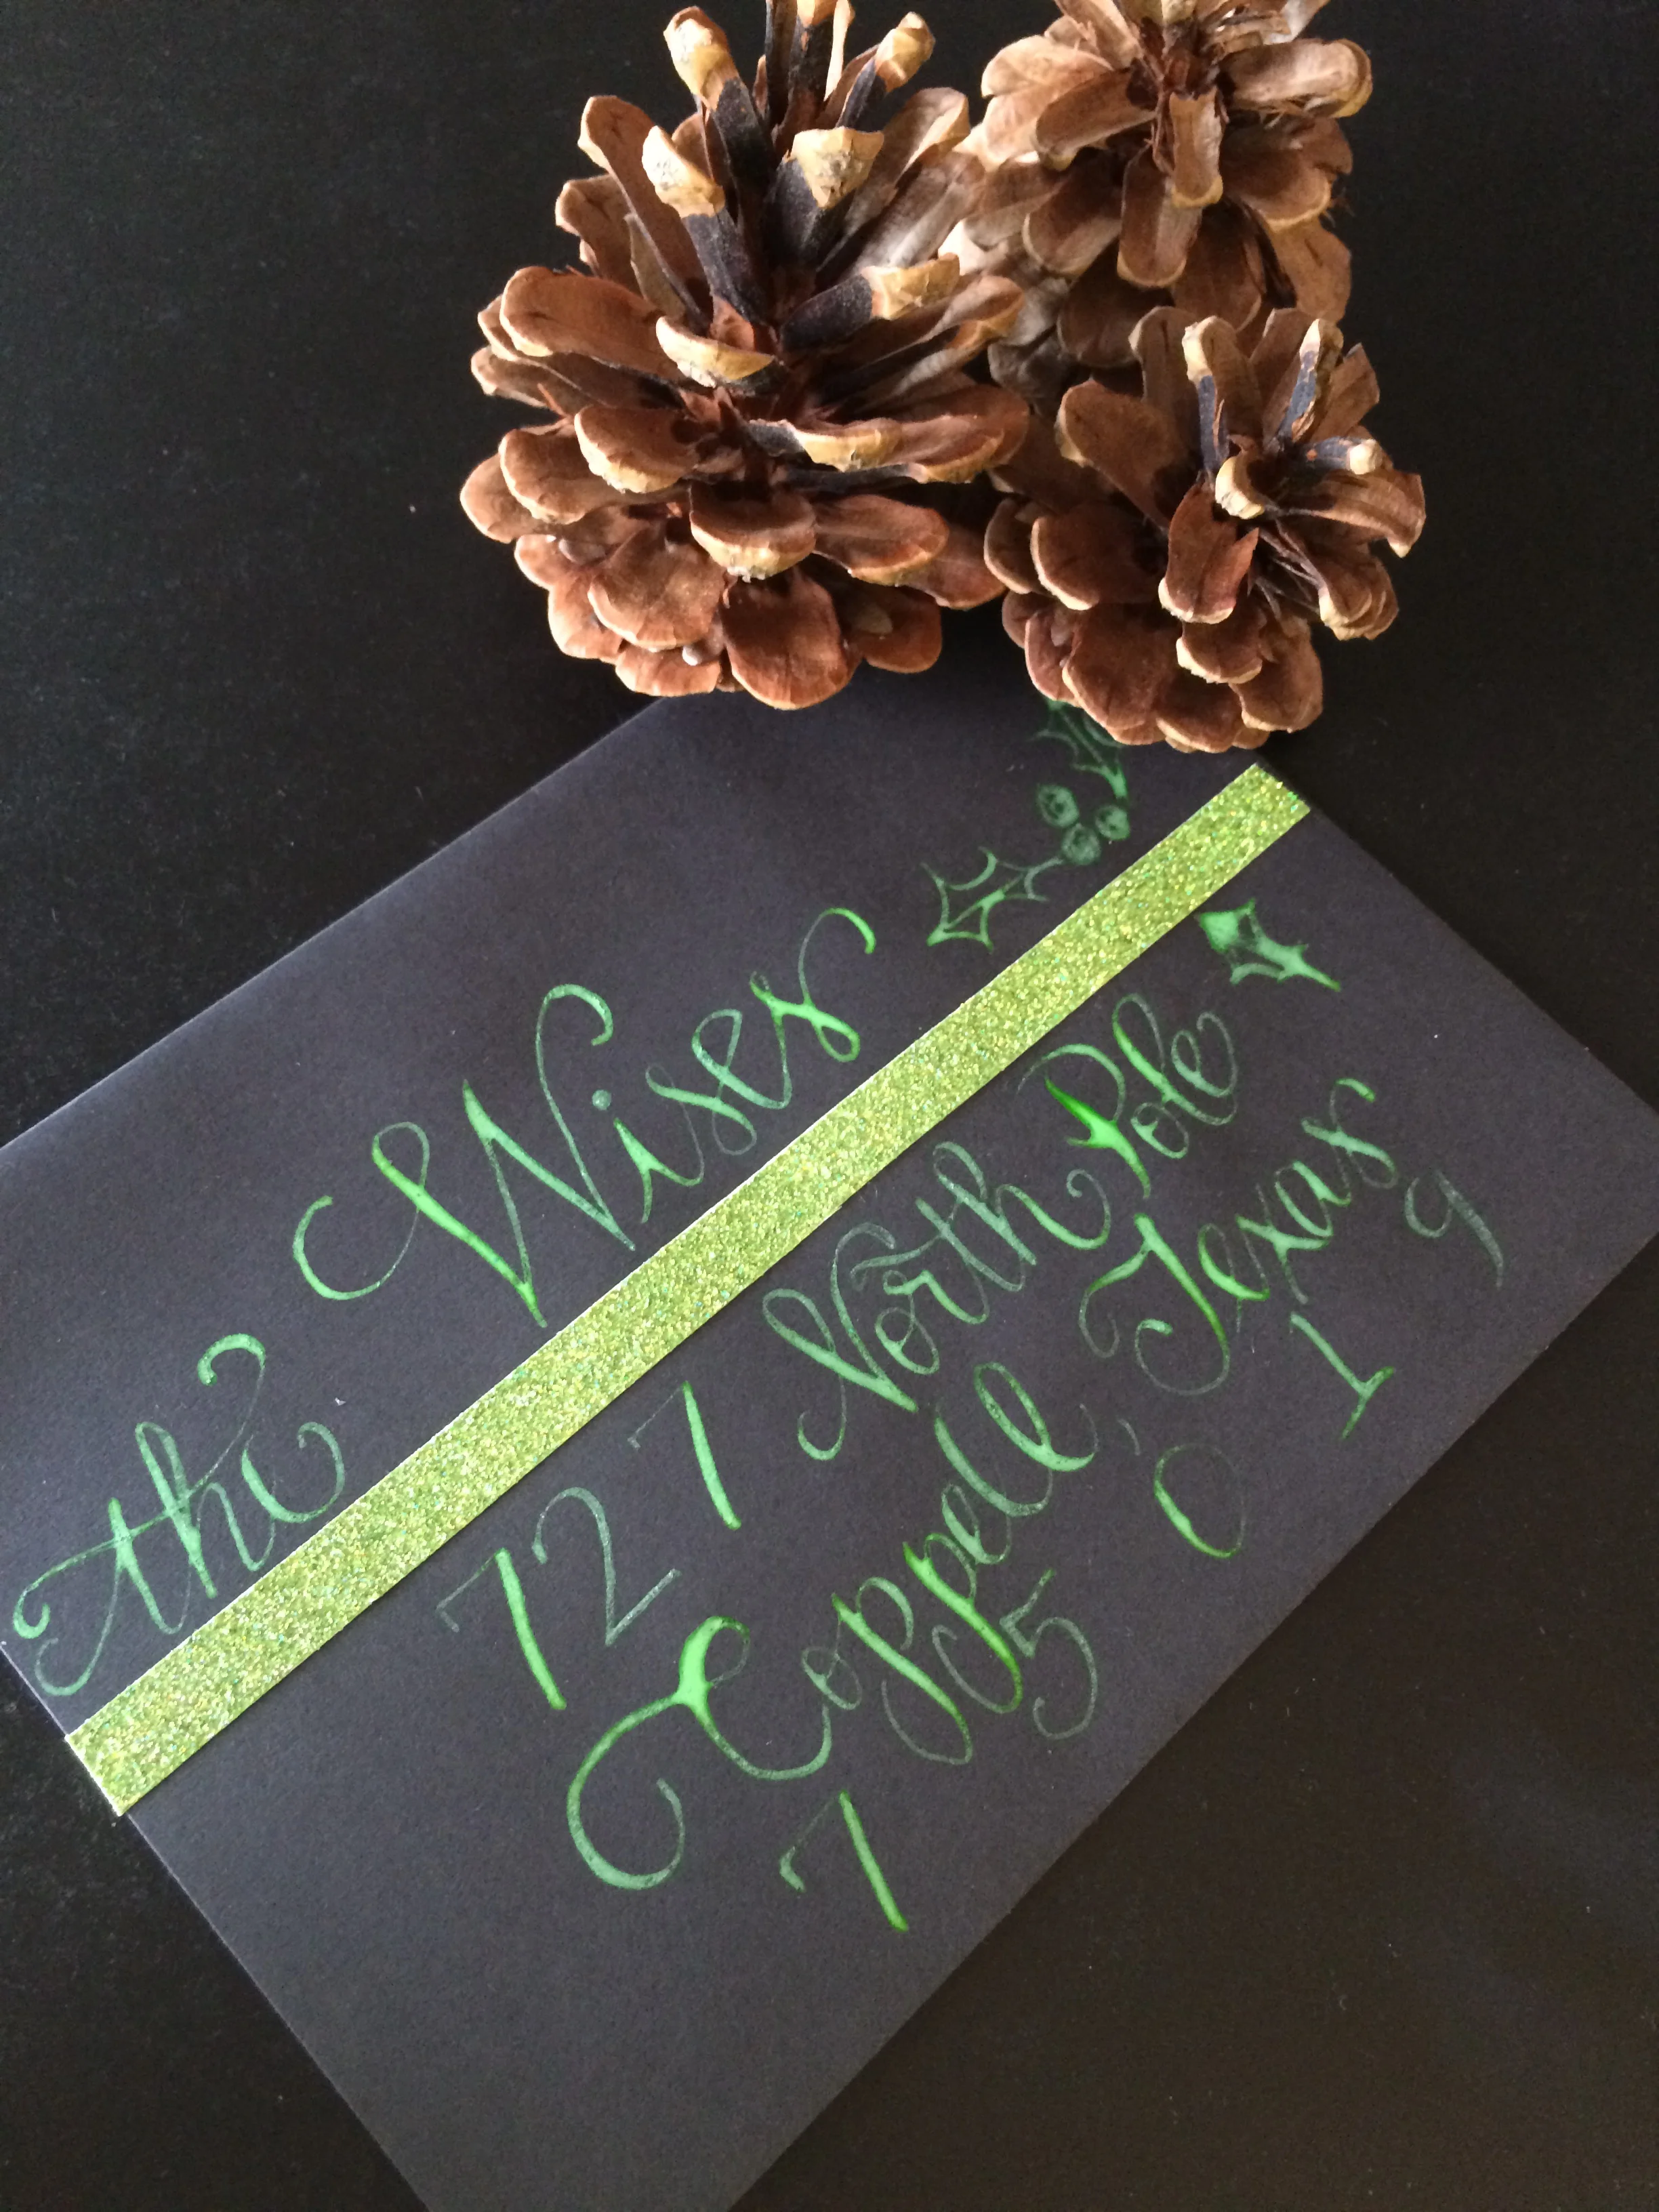 the Wises
727 North Pole
Coppell, Texas
75019